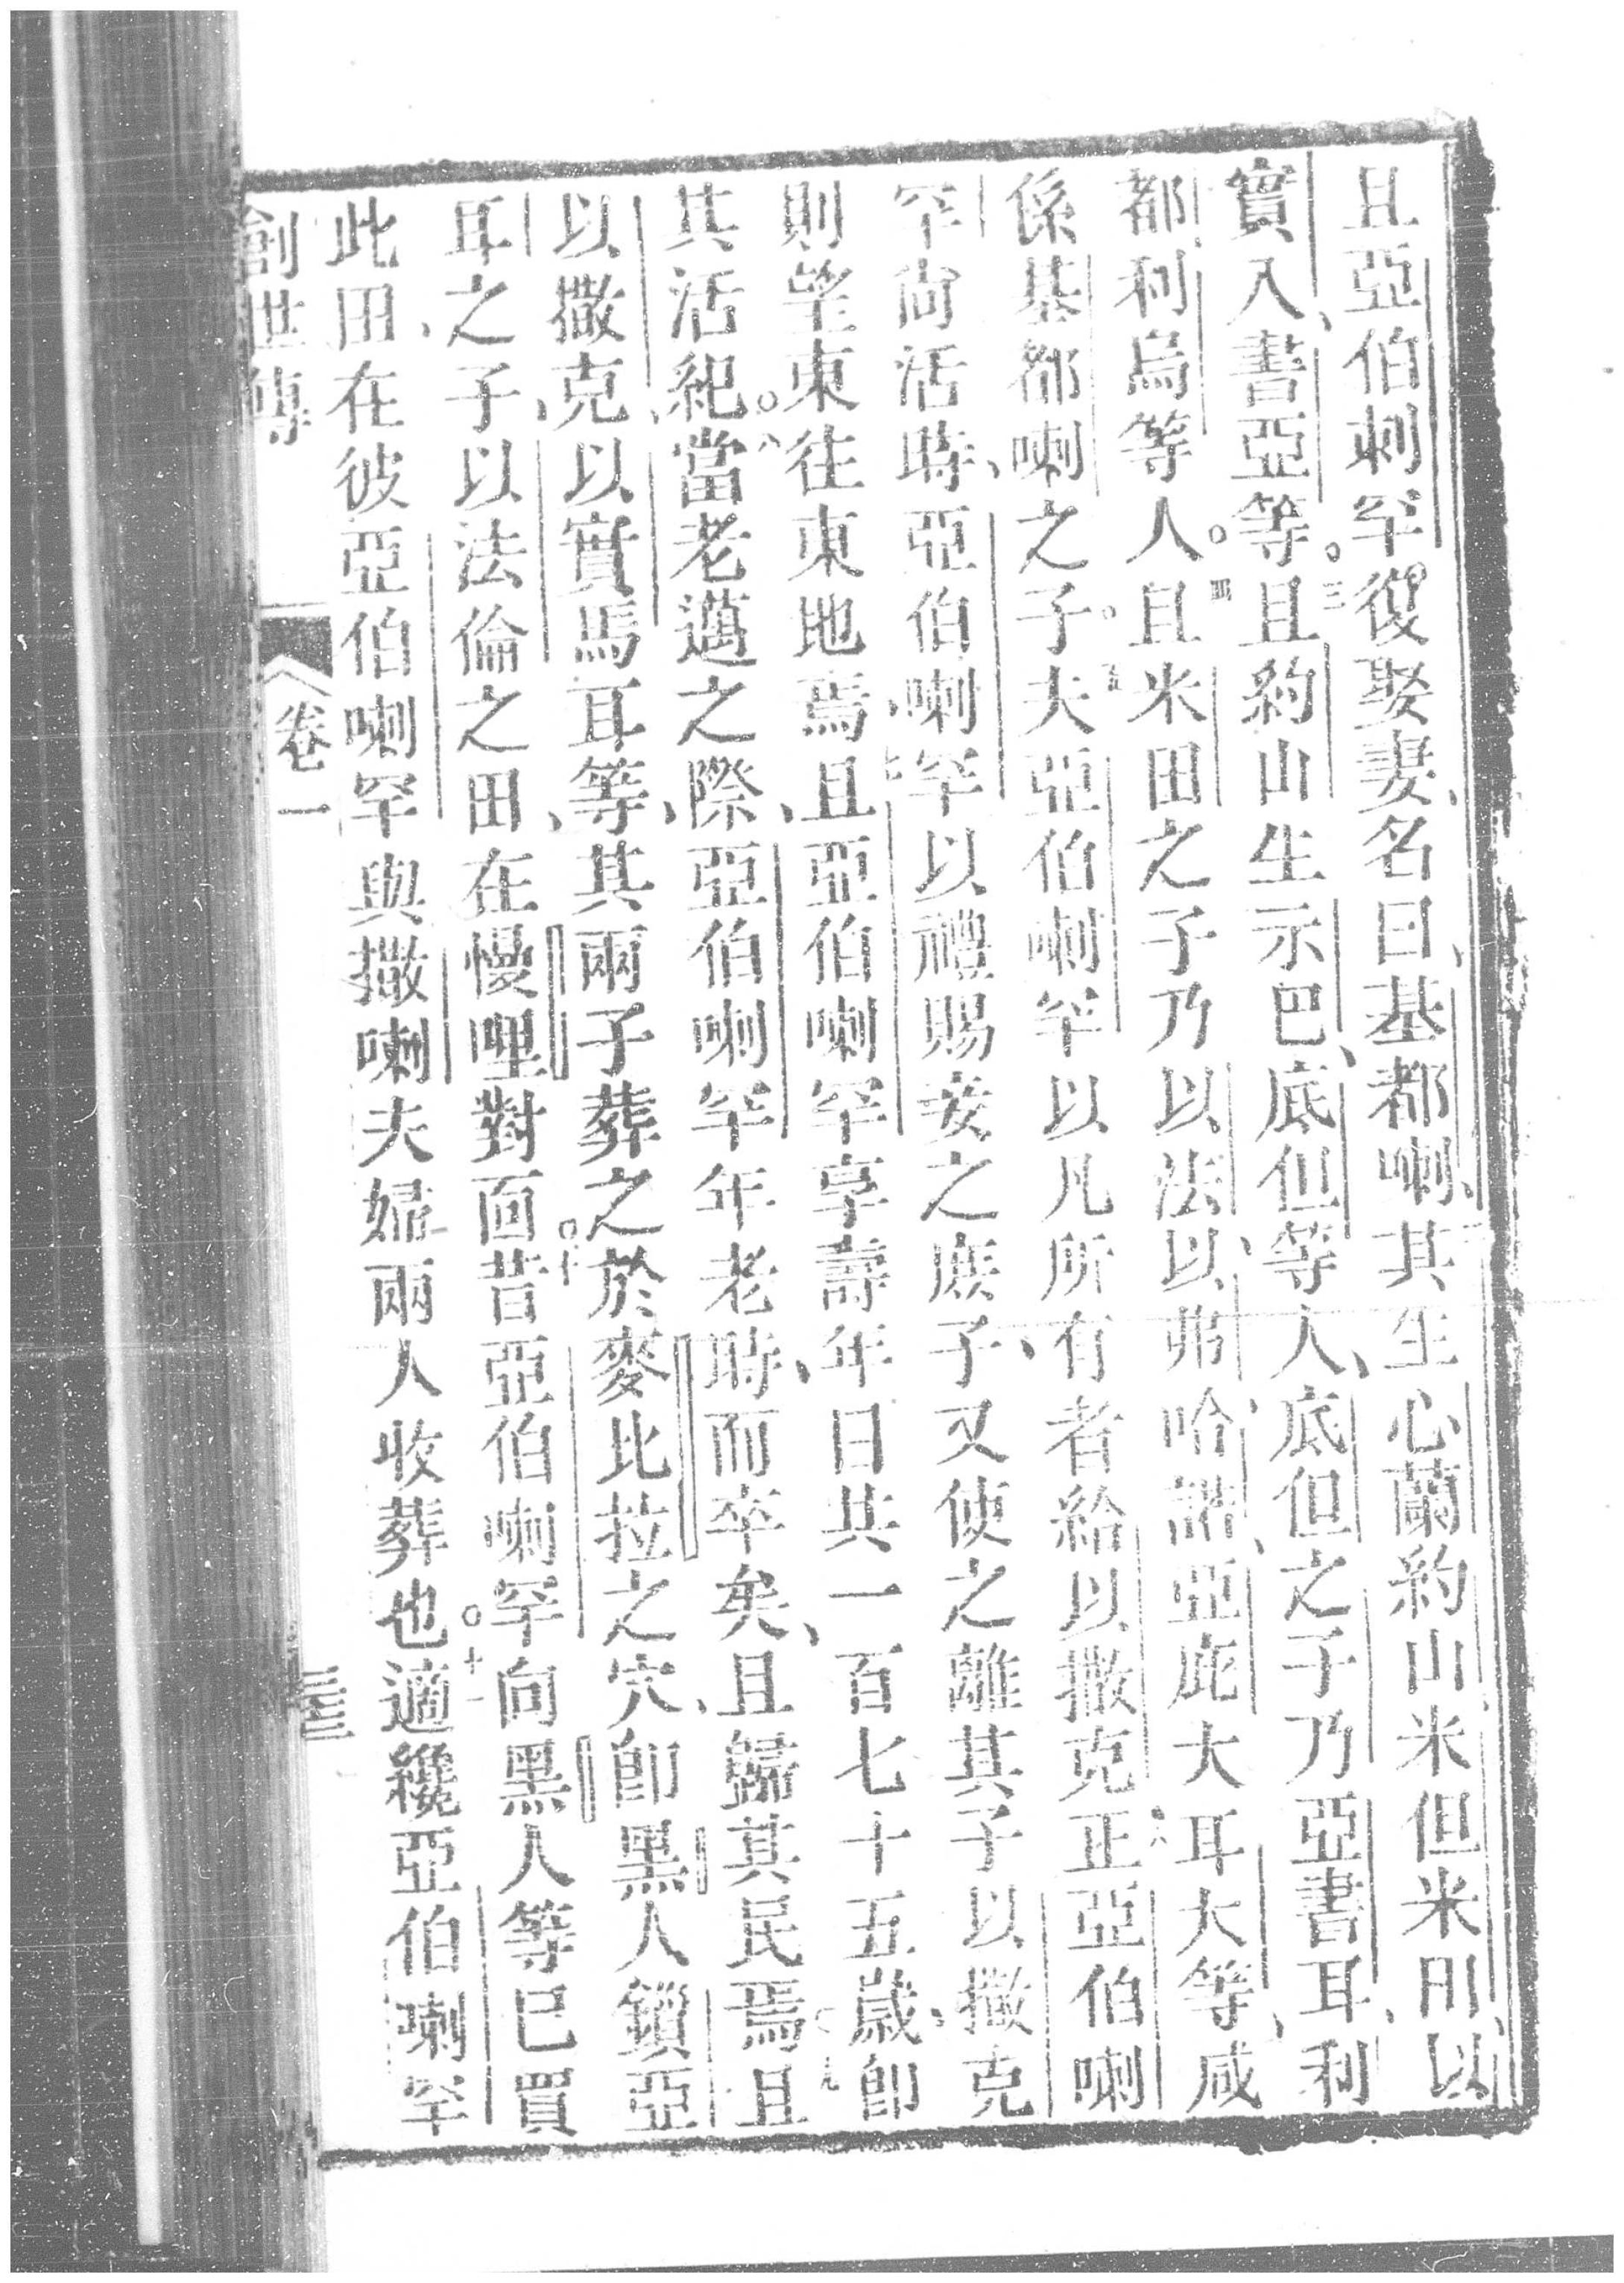 且亞伯喇罕復娶妻名曰基都喇其生心蘭約山米但米田以
實入書亞等。三且約山生示巴底但等人底但之子乃亞書耳利
都利烏等人。四且米田之子乃以法以弗哈諾亞庇大耳大等咸
係基都喇之子。五夫亞伯喇罕以凡所有者給以撒克。六正亞伯喇
罕尙活時亞伯喇罕以禮賜妾之庶子又使之離其子以撒克
則望東往東地焉。七且亞伯喇罕享壽年日共一百七十五歲卽
其活紀。八當老邁之際亞伯喇罕年老時而卒矣且歸其民焉。九且
以撒克以實馬耳等其兩子葬之於麥比拉之穴卽黑人鎖亞
耳之子以法倫之田在慢哩對面。十昔亞伯喇罕向黑人等已買
此田在彼亞伯喇罕與撒喇夫婦兩人收葬也。十一適纔亞伯喇罕
創世傳 卷一 三三